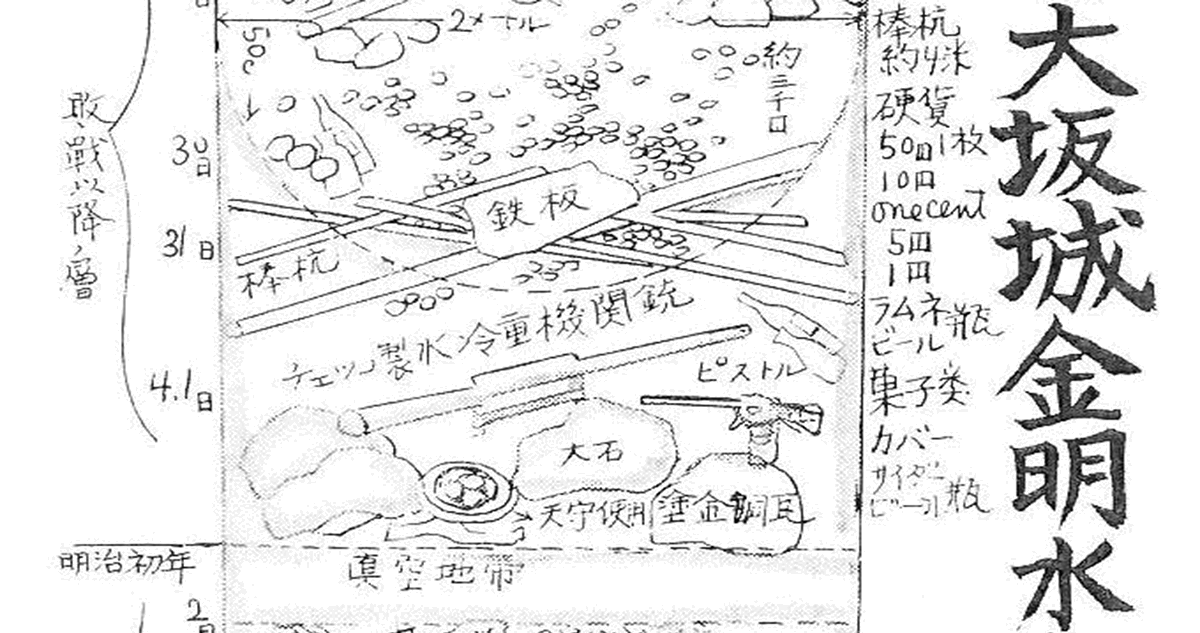 大坂城金明水
棒杭
約4米
硬貨
50円1枚
10円
one cent
5円
1円
ラムネ瓶
ビール
菓子类
カバー
サイダー
ビール瓶
2メートル
50c
約三千口
30日
31日
4.1日
敗戦以降ノ層
鉄板
棒杭
チェッコ製水冷重機関銃
ピストル
大石
天守使用塗金銅瓦
明治初年
真空地帯
2日